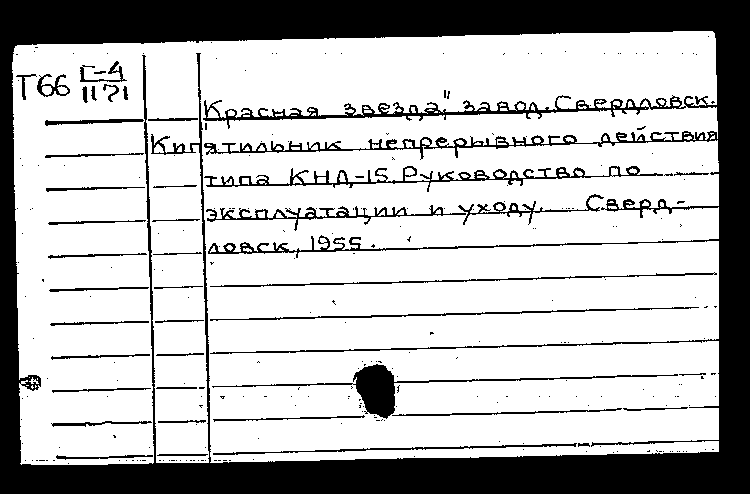 Т66 Г-4
1171
"Красная звезда," завод. Свердловск.
Кипятильник непрерывного действия
типа КНД-15. Руководство по
эксплуатации и уходу. Сверд-
ловск, 1955.